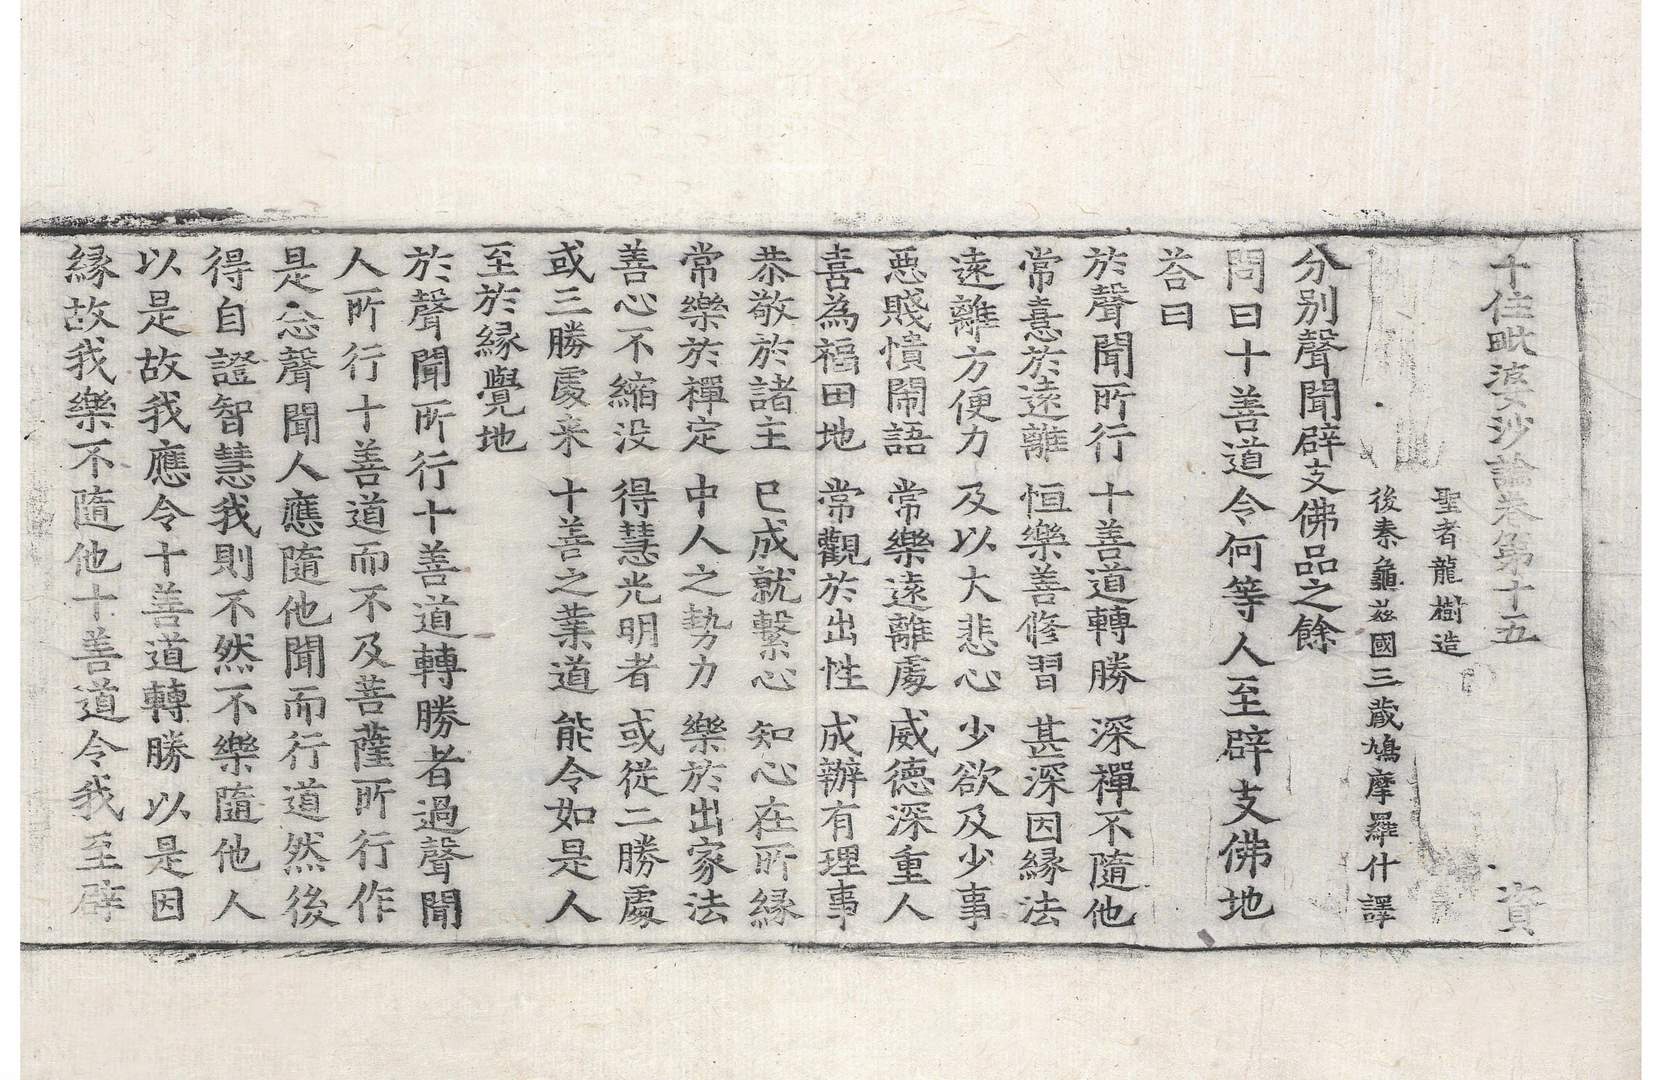 十住毗婆沙論卷第十五　資
聖者龍樹造
後秦龜茲國三藏鳩摩羅什譯
分別聲聞辟支佛品之餘
問曰十善道令何等人至辟支佛地
荅曰
於聲聞所行　十善道轉勝　深禪不隨他
常憙於遠離　恒樂善修習　甚深因緣法
遠離方便力　及以大悲心　少欲及少事
惡賤憒鬧語　常樂遠離處　威德深重人
喜為福田地　常觀於出性　成辦有理事
恭敬於諸主　已成就繫心　知心在所緣
常樂於禪定　中人之勢力　樂於出家法
善心不縮没　得慧光明者　或從二勝處
或三勝處来　十善之業道　能令如是人
至於緣覺地
於聲聞所行十善道轉勝者過聲聞
人所行十善道而不及菩薩所行作
是念聲聞人應隨他聞而行道然後
得自證智慧我則不然不樂隨他人
以是故我應令十善道轉勝以是因
緣故我樂不隨他十善道令我至辟